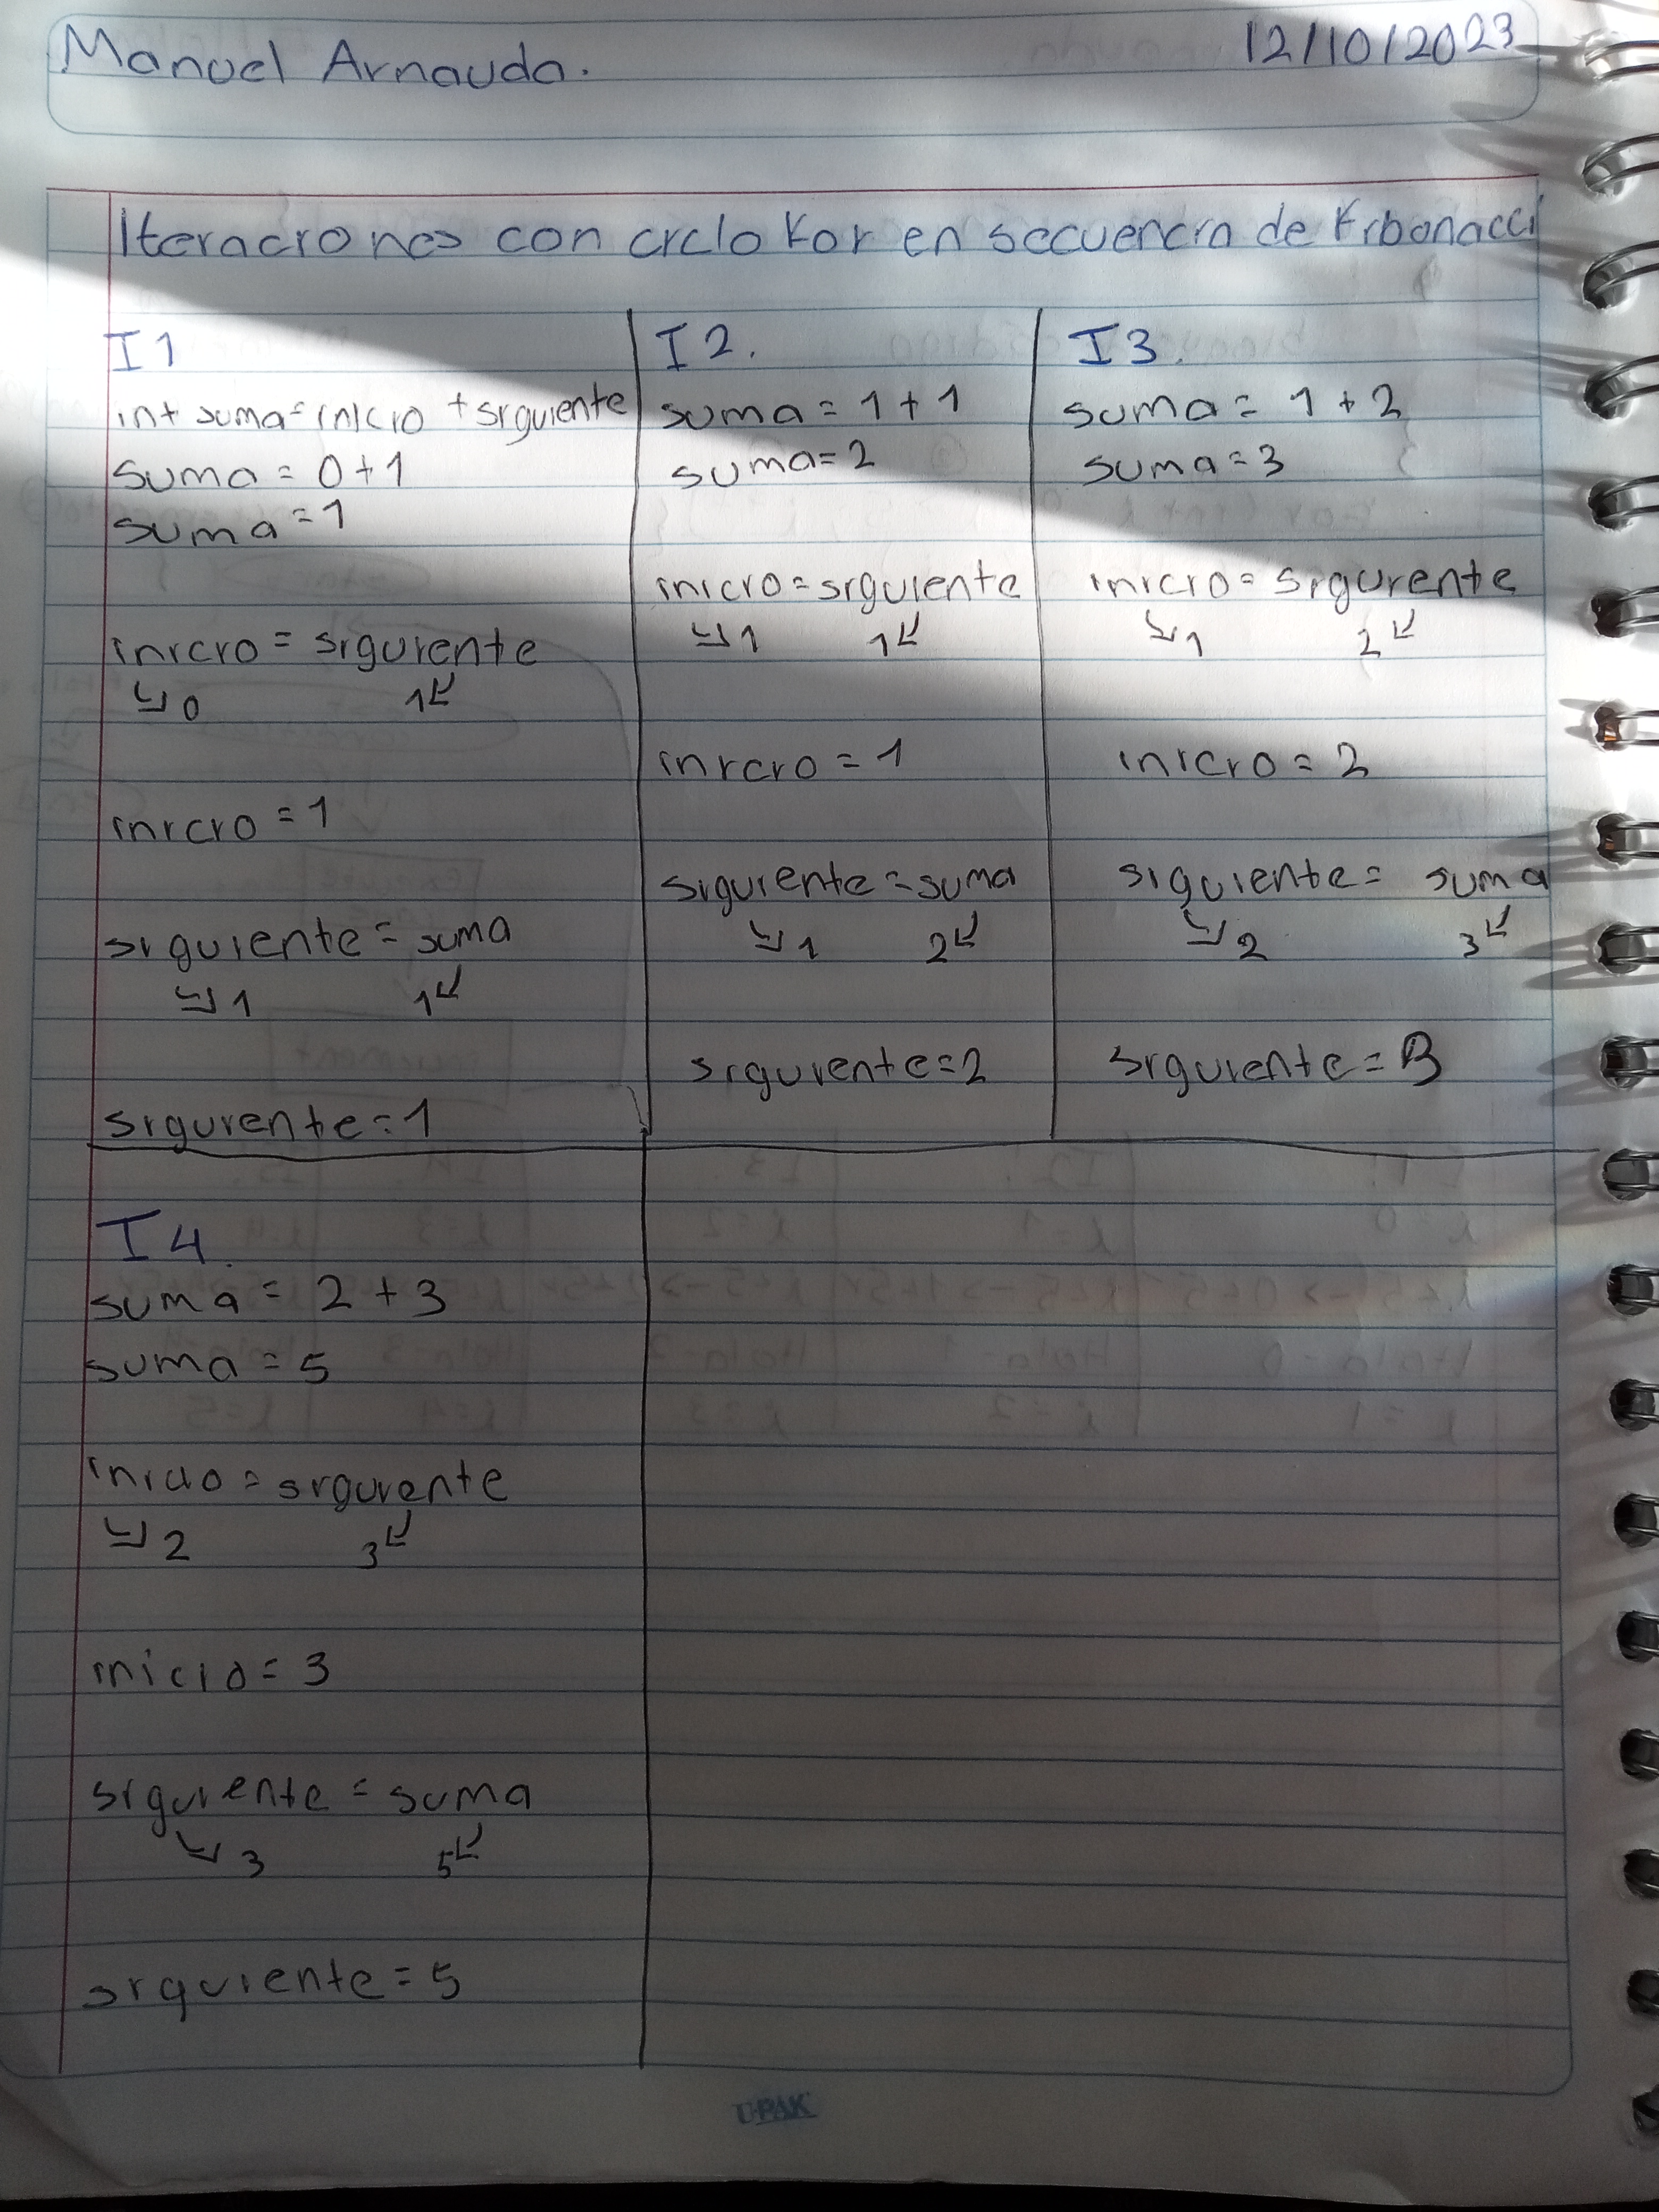 Manuel Arnauda.
12/10/2023
Iteraciones con ciclo For en secuencia de Fibonacci
I1
int suma = inicio + siguiente
suma = 0+1
suma = 1
inicio = siguiente
0 1
inicio = 1
siguiente = suma
1 1
siguiente = 1
I2.
suma = 1+1
suma = 2
inicio = siguiente
1 1
inicio = 1
siguiente = suma
1 2
siguiente = 2
I3.
suma = 1+2
suma = 3
inicio = siguiente
1 2
inicio = 2
siguiente = suma
2 3
siguiente = 3
I4.
suma = 2+3
suma = 5
inicio = siguiente
2 3
inicio = 3
siguiente = suma
3 5
siguiente = 5
UPAK